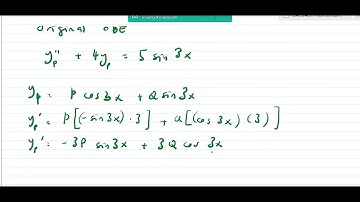 original ODE
yp'' + 4yp = 5 sin 3x
yp = P cos 3x + Q sin 3x
yp' = P[(-sin 3x) · 3] + Q[(cos 3x) (3)]
yp' = -3P sin 3x + 3Q cos 3x